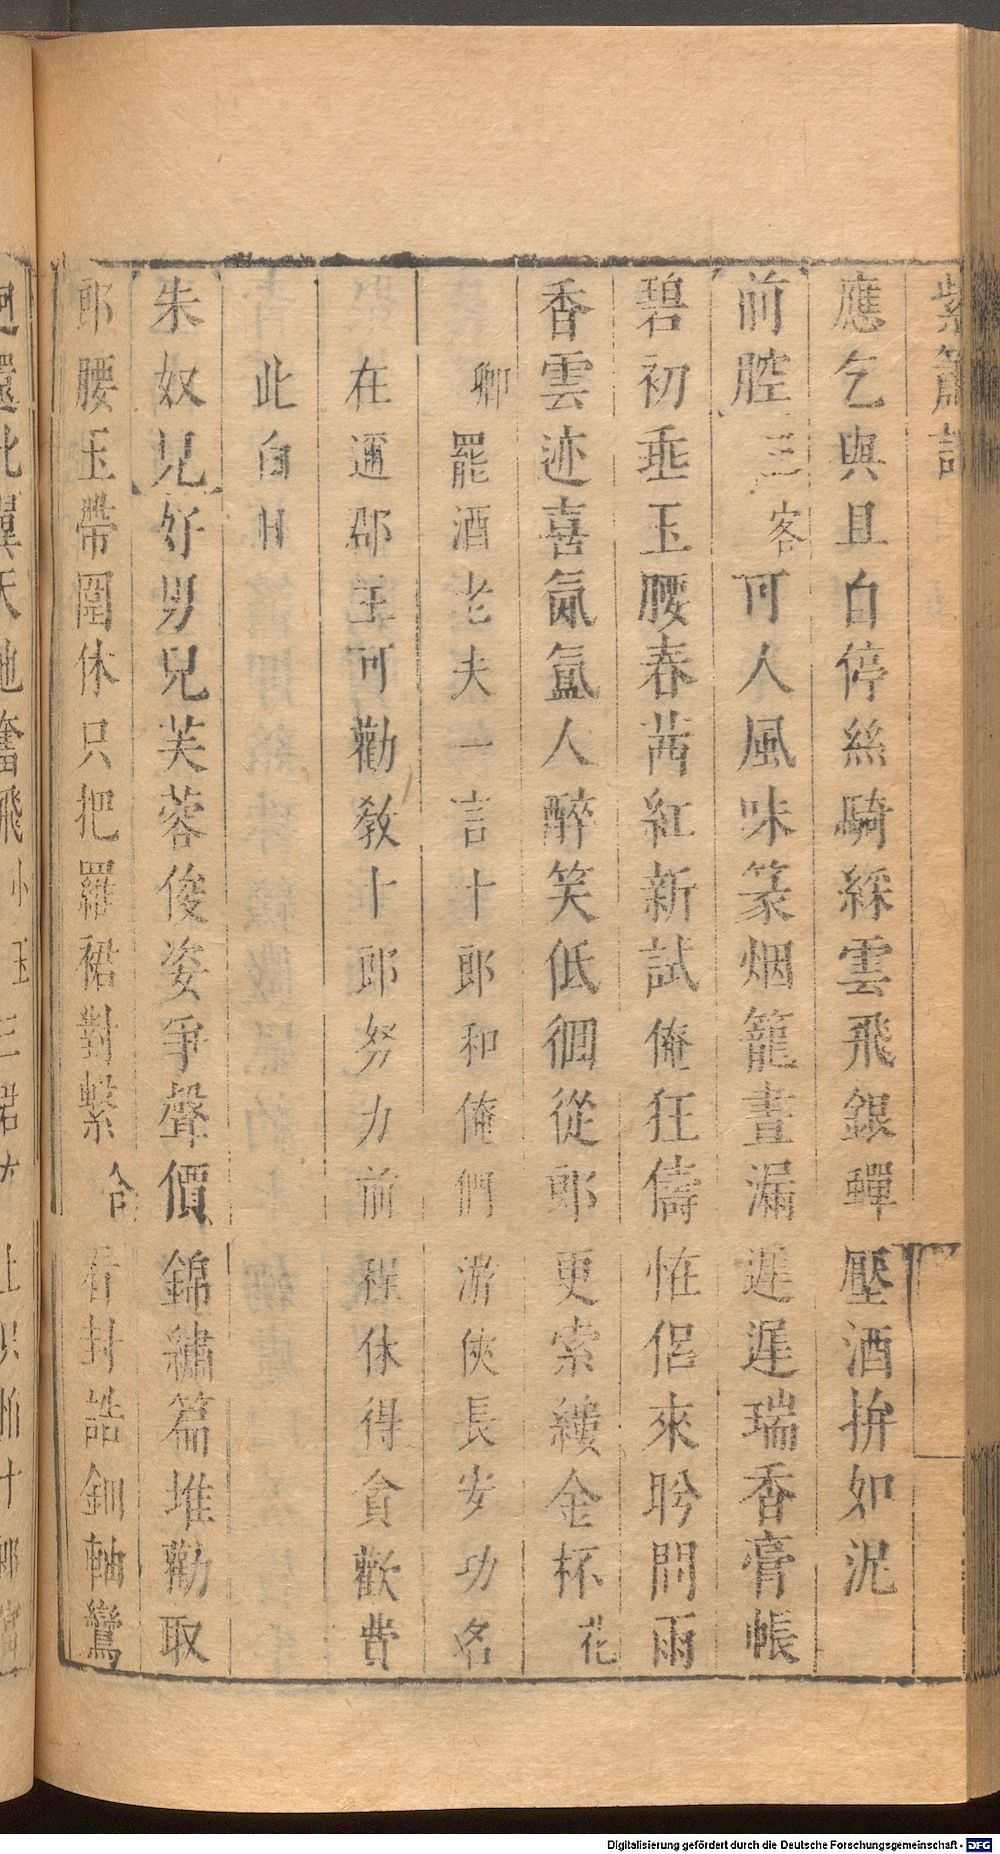 紫簫記
應乞與且自停絲騎綵雲飛銀蟬壓酒拚如泥
前腔三客可人風味篆烟籠晝漏遲遲瑞香膏帳
碧初垂玉腰春茜紅新試俺狂儔怪侶來聆問雨
香雲迹喜氤氳人醉笑低徊從郎更索緩金杯花
卿罷酒老夫一言十郎和俺們游俠長安功名
在邇郡主可勸教十郎努力前程休得貪歡費
此白日
朱奴兒好男兒芙蓉俊姿爭聲價錦繡篇堆勸取
郎腰玉帶圍休只把羅裙對繫合看封誥鈿軸鸞
迴還北翼天池奮飛小玉三君
止只怕十郎
Digitalisierung gefördert durch die Deutsche Forschungsgemeinschaft - DFG